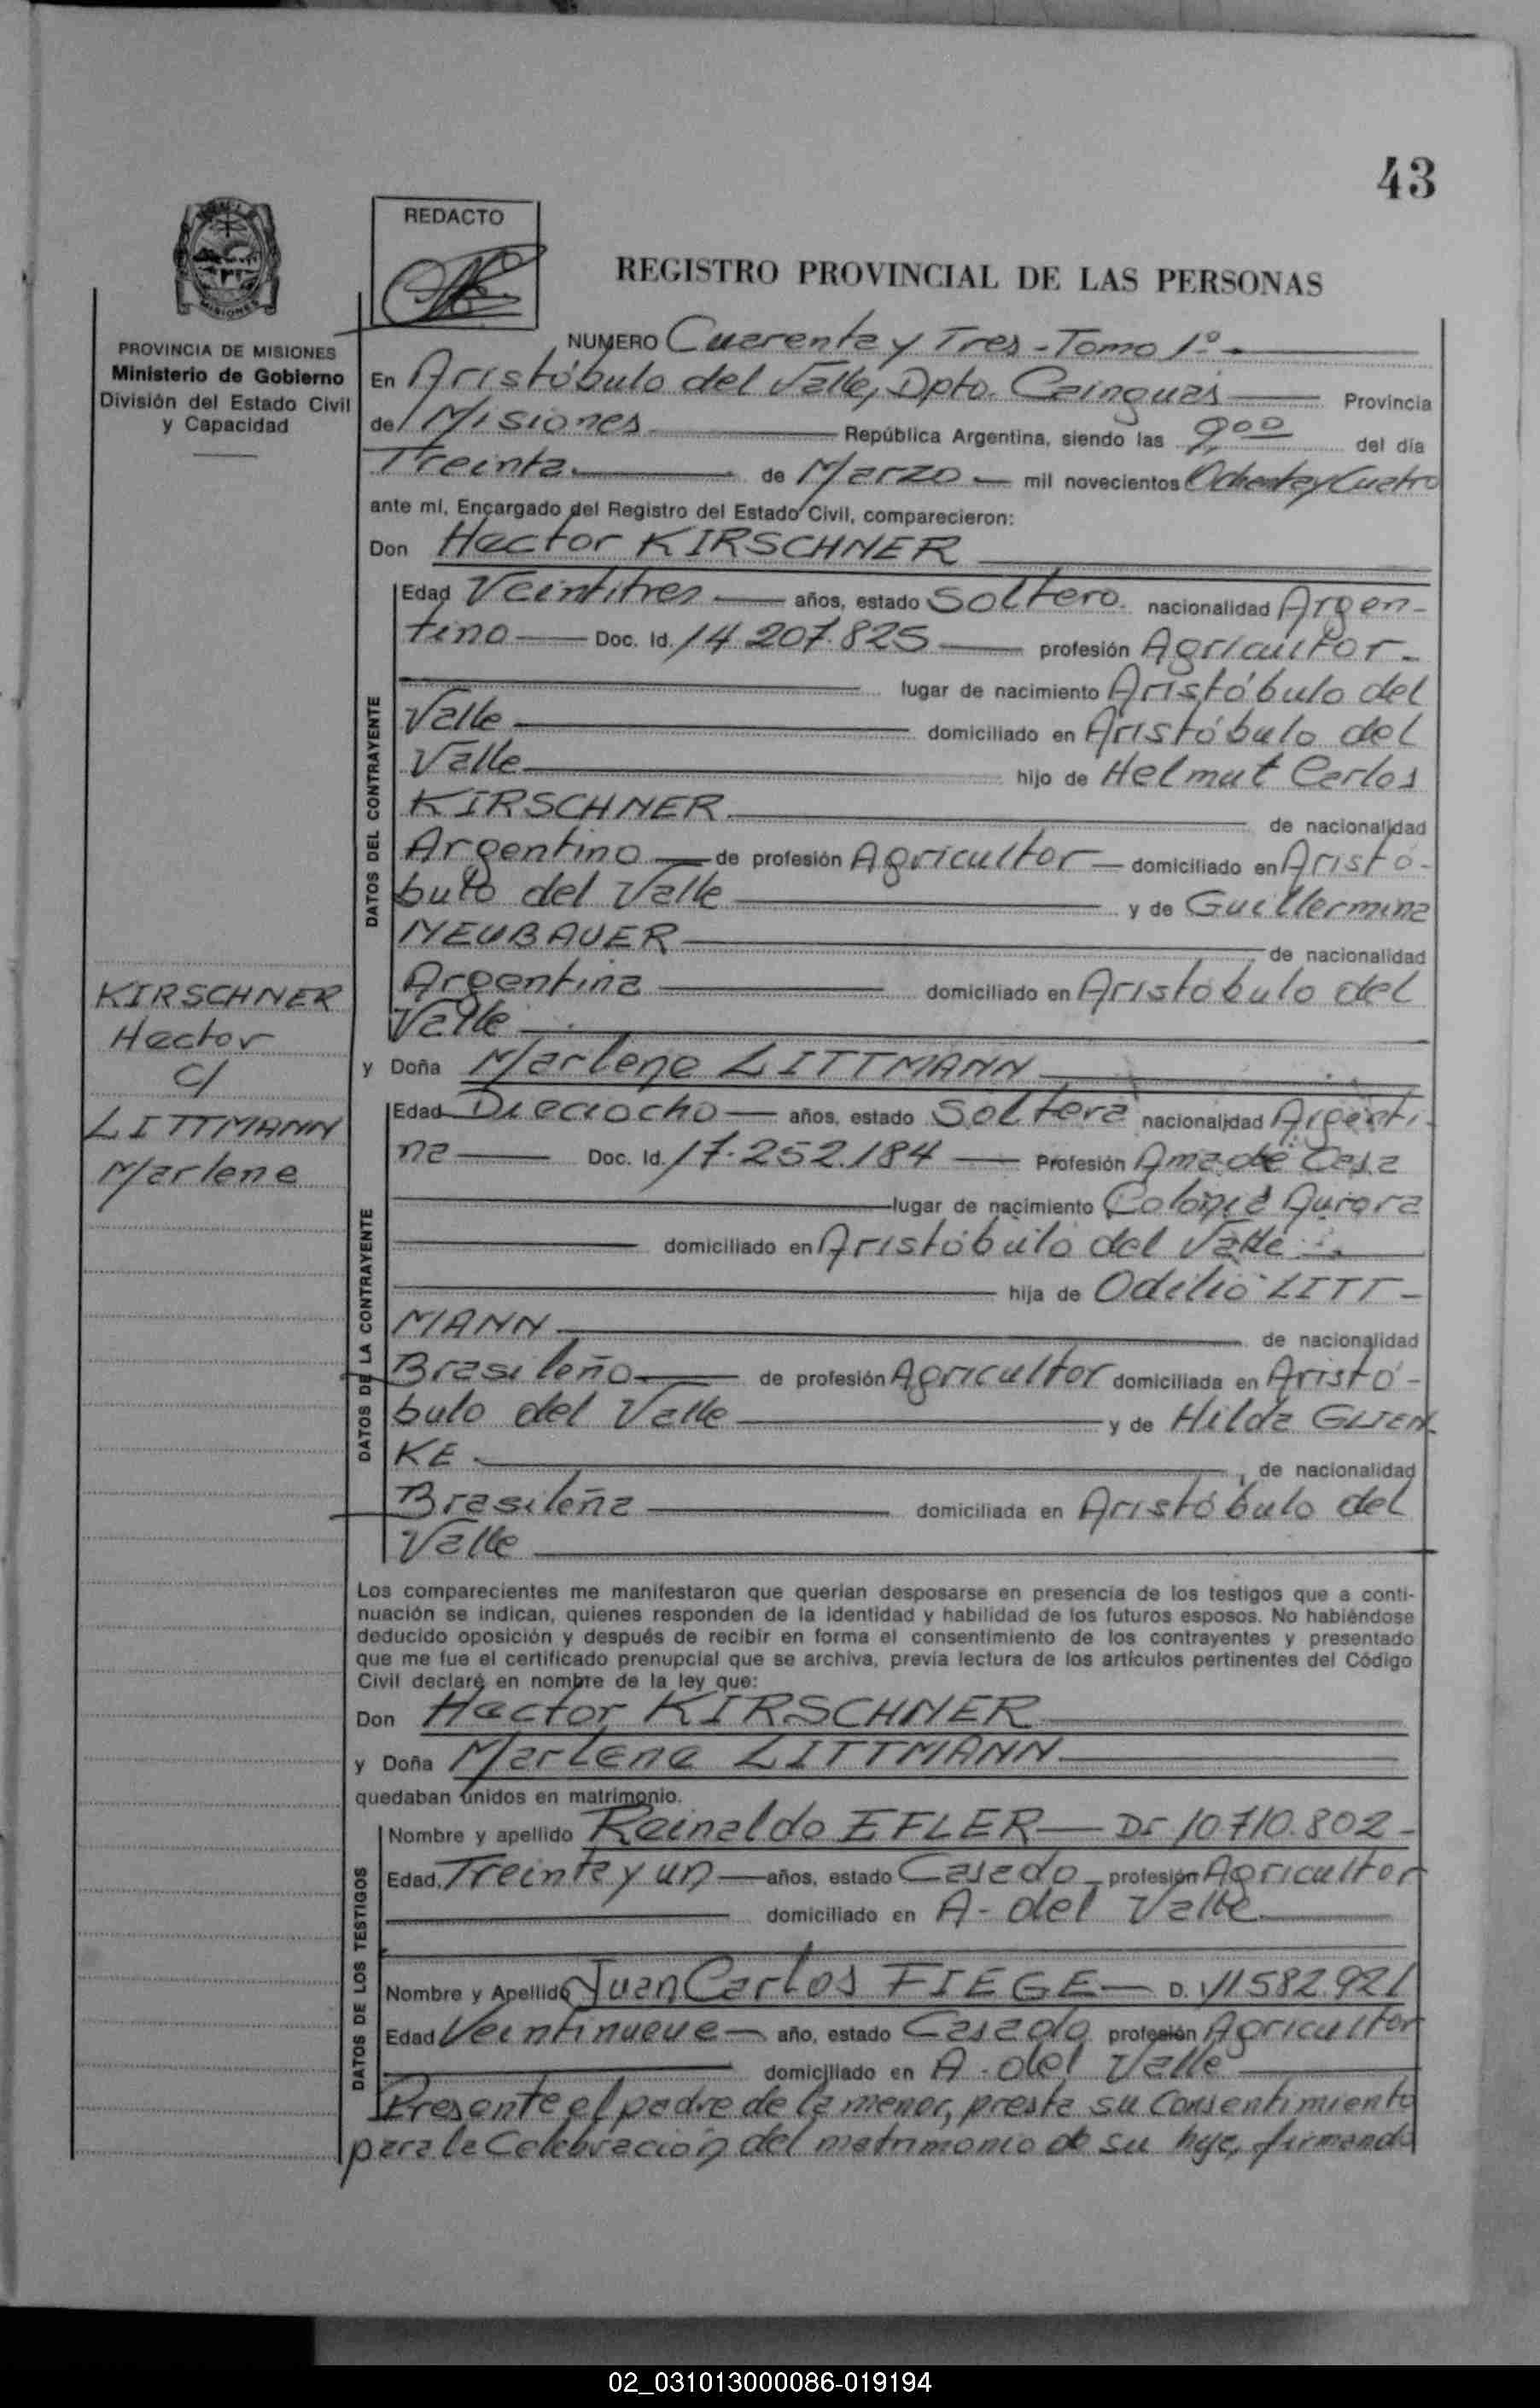 43
REDACTO
REGISTRO PROVINCIAL DE LAS PERSONAS
MISIONES
PROVINCIA DE MISIONES
Ministerio de Gobierno
División del Estado Civil
y Capacidad
NUMERO Cuarenta y Tres - Tomo 1º -
En Aristóbulo del Valle, Dpto. Cainguás Provincia
de Misiones República Argentina, siendo las 9,00 del día
Treinta de Marzo mil novecientos Ochenta y Cuatro
ante mí, Encargado del Registro del Estado Civil, comparecieron:
Don Hector KIRSCHNER
Edad Veintitres años, estado Soltero nacionalidad Argen-
tino Doc. Id. 14.207.825 profesión Agricultor
lugar de nacimiento Aristóbulo del
Valle domiciliado en Aristóbulo del
Valle hijo de Helmut Carlos
KIRSCHNER de nacionalidad
Argentino de profesión Agricultor domiciliado en Aristó-
bulo del Valle y de Guillermina
NEUBAUER de nacionalidad
Argentina domiciliado en Aristóbulo del
Valle
DATOS DEL CONTRAYENTE
KIRSCHNER
Hector
c/
LITTMANN
Marlene
y Doña Marlene LITTMANN
Edad Dieciocho años, estado Soltera nacionalidad Argenti-
na Doc. Id. 17.252.184 Profesión Ama de Casa
lugar de nacimiento Colonia Aurora
domiciliado en Aristóbulo del Valle
hija de Odilio LITT-
MANN de nacionalidad
Brasileño de profesión Agricultor domiciliada en Aristó-
bulo del Valle y de Hilda GLIEN
KE , de nacionalidad
Brasileña domiciliada en Aristóbulo del
Valle
DATOS DE LA CONTRAYENTE
Los comparecientes me manifestaron que querían desposarse en presencia de los testigos que a conti-
nuación se indican, quienes responden de la identidad y habilidad de los futuros esposos. No habiéndose
deducido oposición y después de recibir en forma el consentimiento de los contrayentes y presentado
que me fue el certificado prenupcial que se archiva, previa lectura de los artículos pertinentes del Código
Civil declaré en nombre de la ley que:
Don Hector KIRSCHNER
y Doña Marlene LITTMANN
quedaban unidos en matrimonio.
Nombre y apellido Reinaldo EFLER DI 10.710.802
Edad. Treinta y un años, estado Casado profesión Agricultor
domiciliado en A- del Valle
Nombre y Apellido Juan Carlos FIEGE D. I 11582.921
Edad Veintinueve año, estado Casado profesión Agricultor
domiciliado en A - del Valle
DATOS DE LOS TESTIGOS
Presente el padre de la menor, presta su Consentimiento
para la Celebración del matrimonio de su hija, firmando
02_031013000086-019194